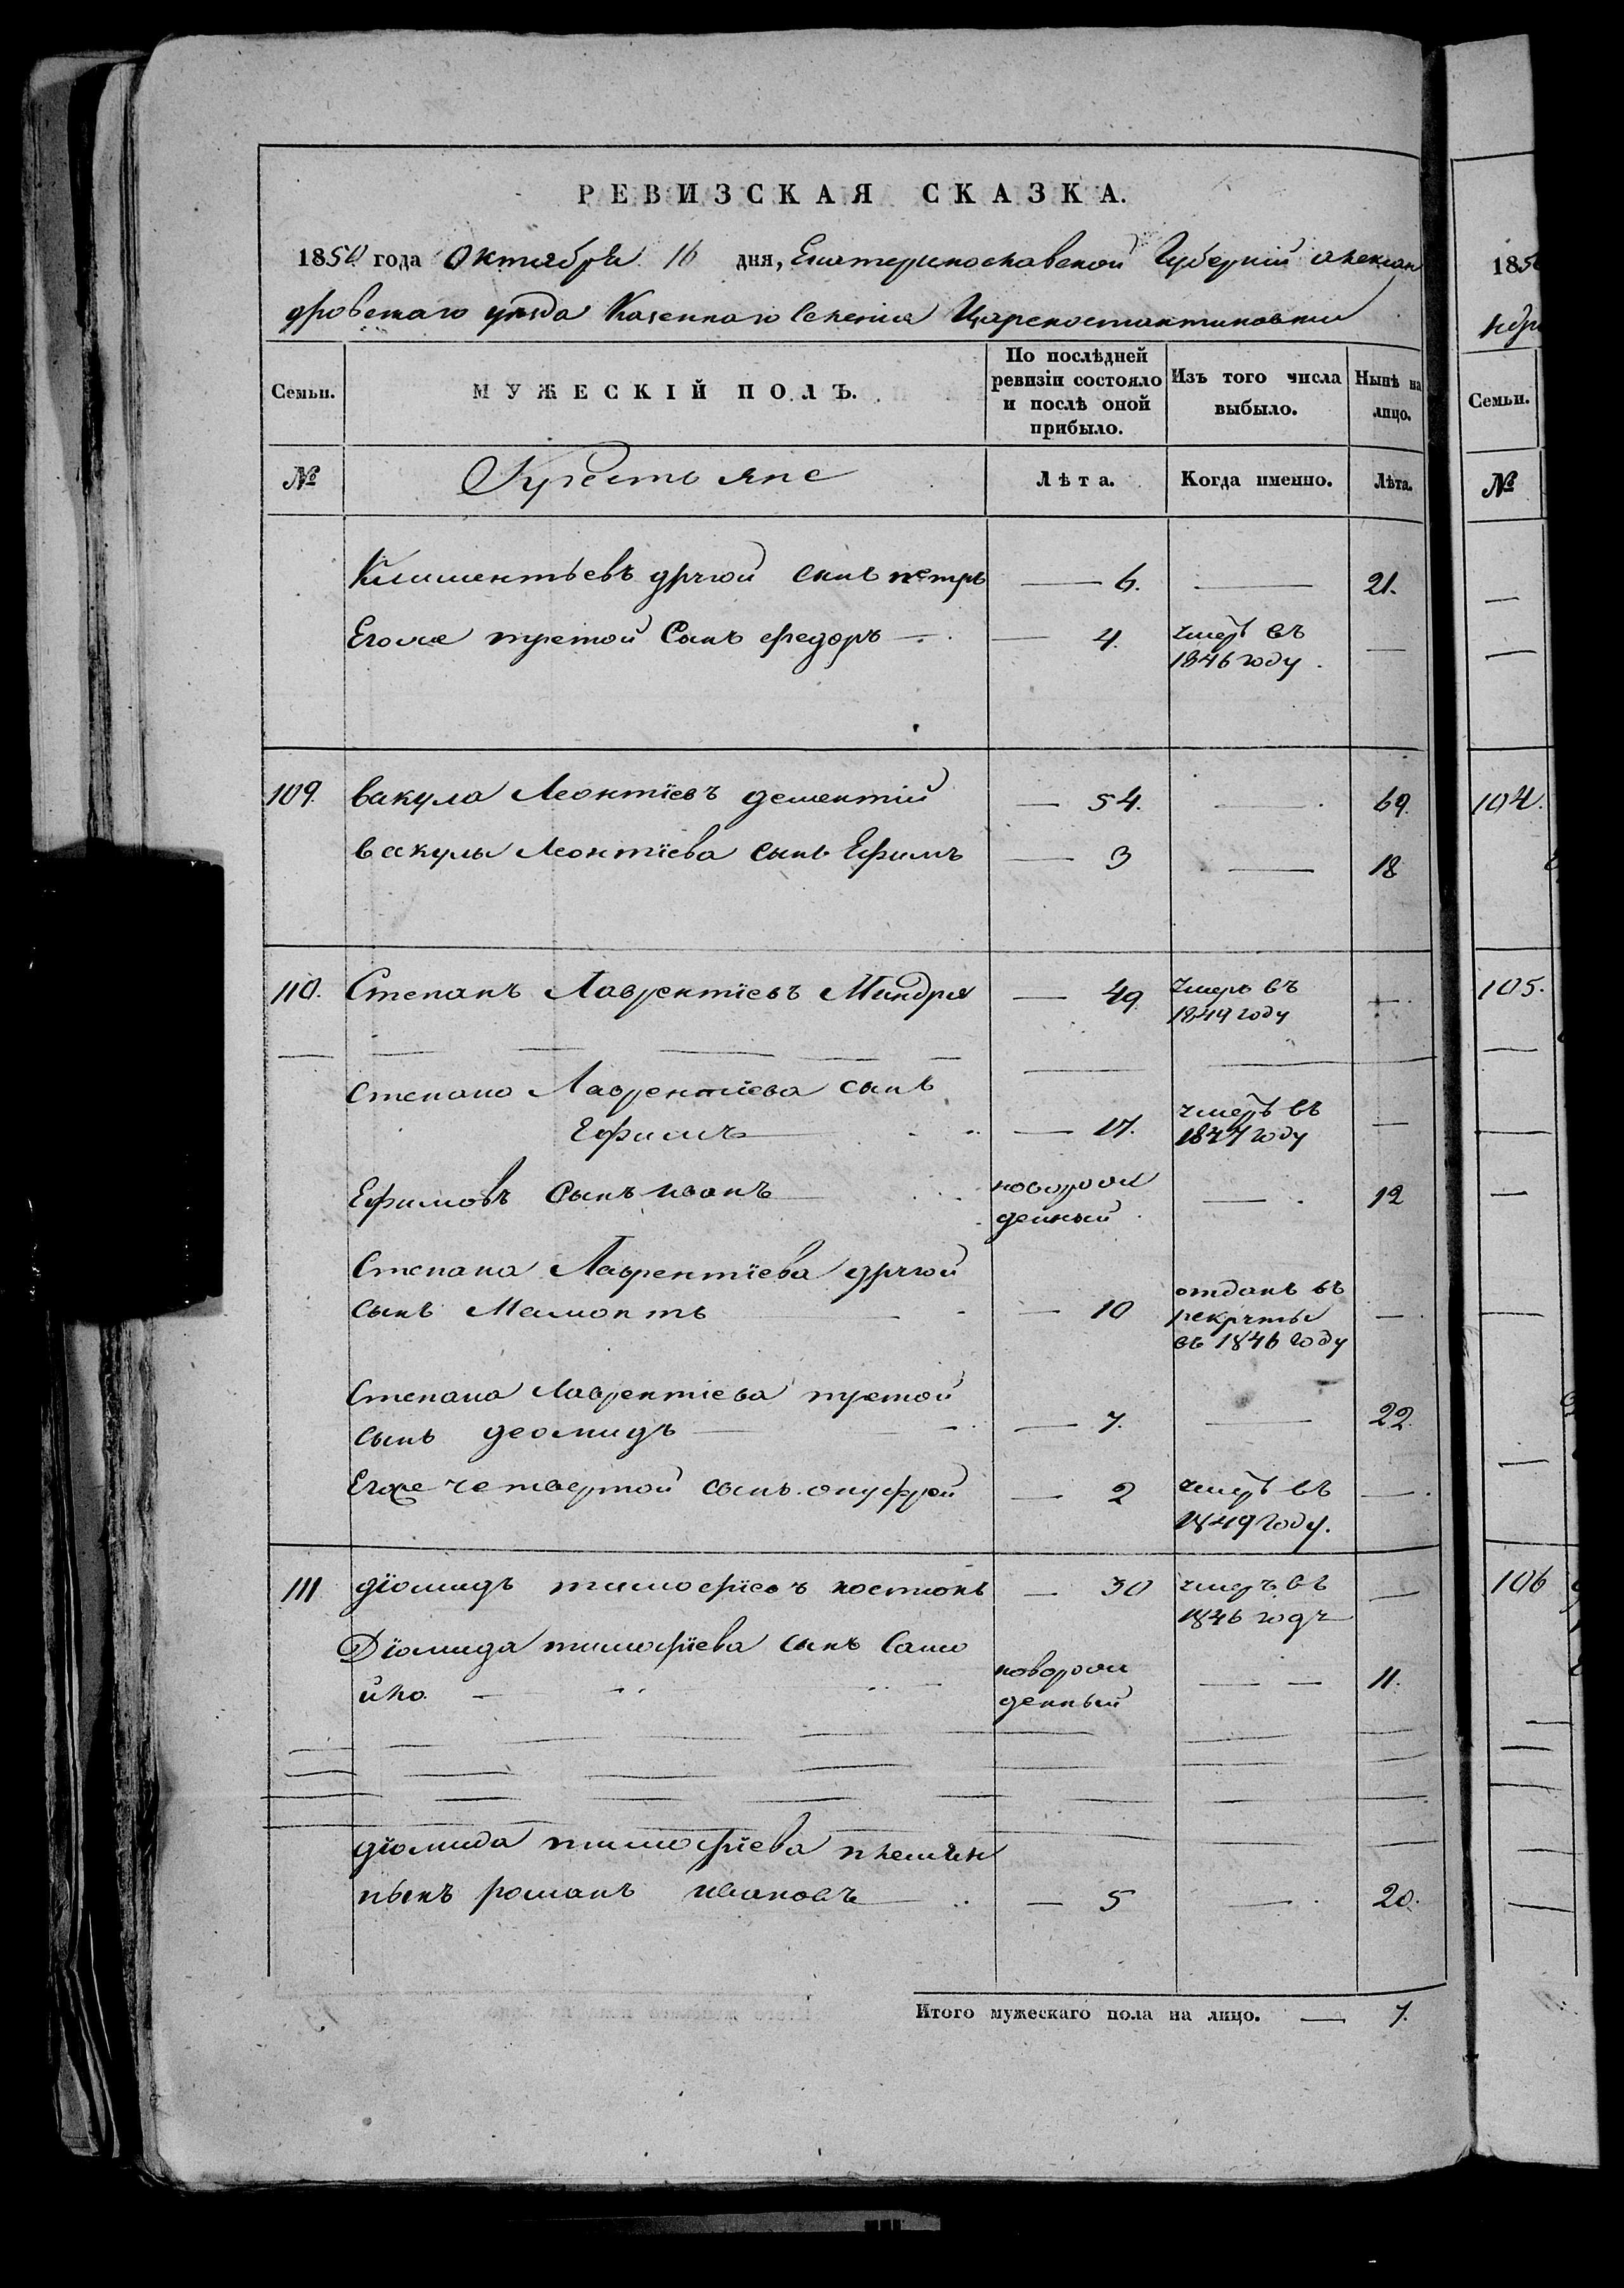 РЕВИЗСКАЯ СКАЗКА.
1850 года Октября 16 дня, Екатеринославской Губерніи Алексан
дровскаго уѣзда Казеннаго Селенія Цареконстантиновки
Семьи.
МУЖЕСКІЙ ПОЛЪ.
По послѣдней
ревизіи состояло
и послѣ оной
прибыло.
Изъ того числа
выбыло.
Нынѣ на
лицо.
№ Крестьяне Лѣта. Когда именно. Лѣта.
Климентьевъ другой сынъ петръ — 6. — 21.
Егоже третой Сынъ федоръ — 4. умеръ въ
1846 году. —
109. вакула Леонтїевъ дементїй — 54. — 69.
вакулы Леонтїева сынъ Ефимъ — 3 — 18
110. Степанъ Лаврентїевъ Миндря — 49 умеръ въ
1849 году —
Степана Лаврентїева сынъ
Ефимъ — 17. умеръ въ
1847 году —
Ефимовъ Сынъ иванъ новорож
денный — 12
Степана Лаврентїева другой
сынъ Мамонтъ — 10 отданъ въ
рекруты
въ 1846 году —
Степана Лаврентіева третой
сынъ деомидъ — 7. — 22.
Егоже четвертой сынъ онуфрей — 2 умеръ въ
1849 году. —
111 дїомидъ тимофїевъ костюкъ — 30 умеръ въ
1846 году —
Дїомида тимофїева сынъ Само
йло. новорож
денный — 11.
дїомида тимофїева племян
никъ романъ ивановъ — 5 — 20.
Итого мужескаго пола на лицо. — 7.
185
Семьи.
№
104.
105.
106